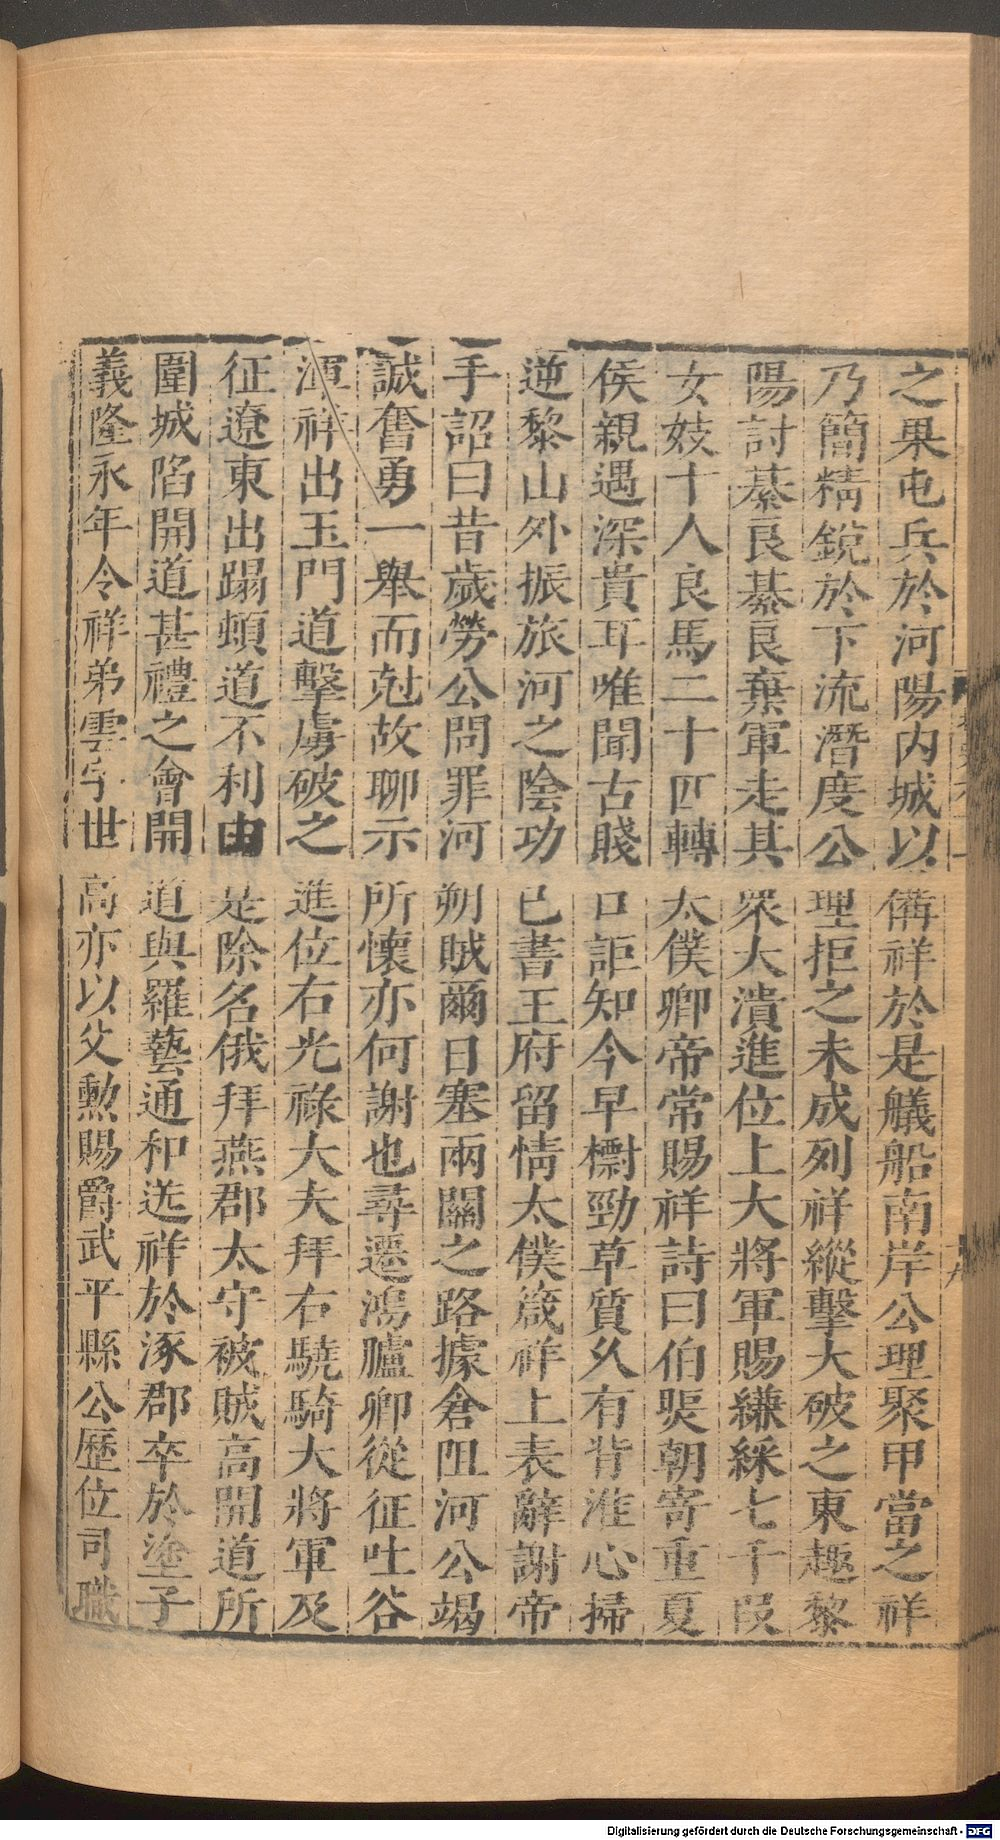 之果屯兵於河陽內城以備祥於是艤船南岸公理聚甲當之祥
乃簡精銳於下流潛度公理拒之未成列祥縱擊大破之東趣黎
陽討綦良綦良棄軍走其衆大潰進位上大將軍賜縑綵七千段
女妓十人良馬二十匹轉太僕卿帝常賜祥詩曰伯煚朝寄重夏
侯親遇深貴耳唯聞古賤口詎知今早摽勁草質久有背淮心掃
逆黎山外振旅河之陰功已書王府留情太僕箴祥上表辭謝帝
手詔曰昔歲勞公問罪河朔賊爾日塞兩關之路據倉阻河公竭
誠奮勇一舉而尅故聊示所懷亦何謝也尋遷鴻臚卿從征吐谷
渾祥出玉門道擊虜破之進位右光祿大夫拜右驍騎大將軍及
征遼東出蹋頓道不利由是除名俄拜燕郡太守被賊高開道所
圍城陷開道甚禮之會開道與羅藝通和送祥於涿郡卒於塗子
義隆永年令祥弟雲字世高亦以父勲賜爵武平縣公歷位司職
Digitalisierung gefördert durch die Deutsche Forschungsgemeinschaft - DFG